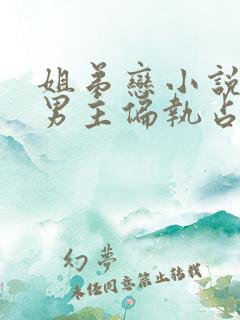 姐弟戀小說
男主偏執占
幻夢
未經同意禁止轉載